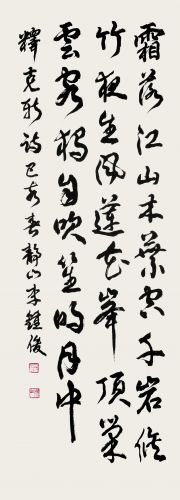 霜落江山木葉空千岩脩
竹夜生風蓮花峯頂巢
雲客獨自吹笙明月中
釋克新詩己亥春靜山李鍾俊